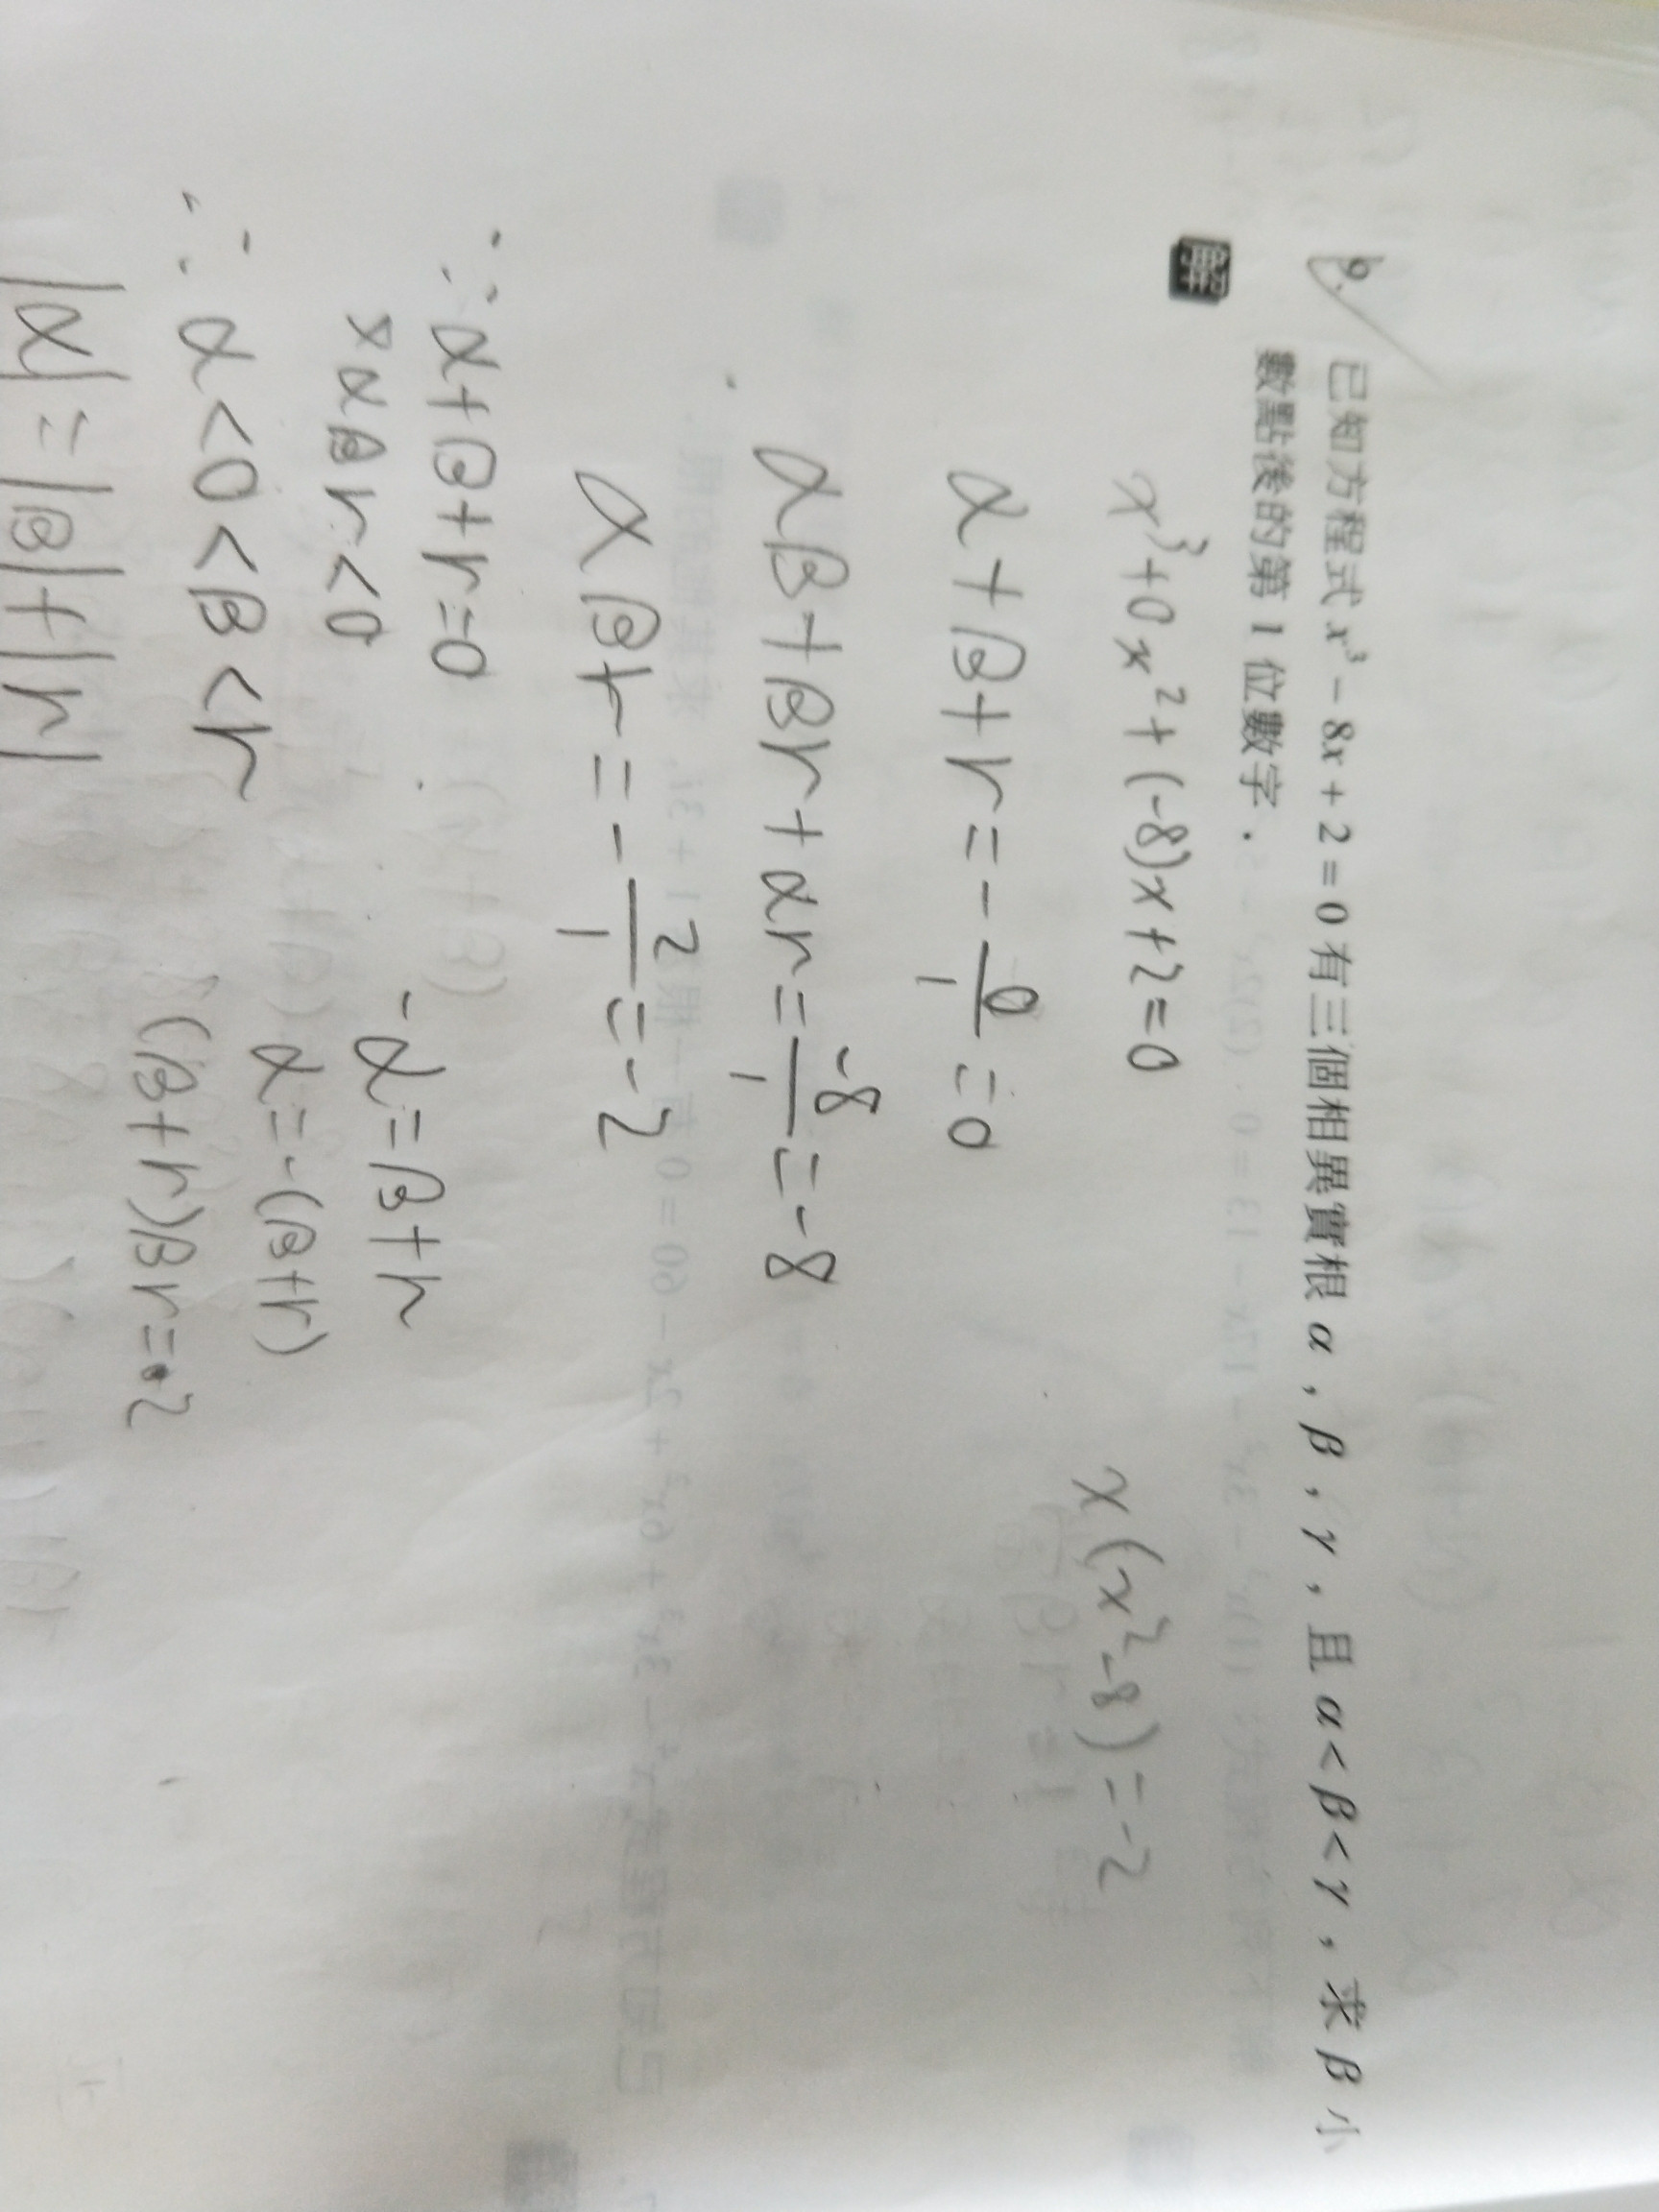 9. 已知方程式 x³ − 8x + 2 = 0 有三個相異實根 α，β，γ，且 α < β < γ，求 β 小
數點後的第 1 位數字．
解
x³+0x²+(-8)x+2=0
x(x²-8)=-2
α+β+r=-0/1=0
αβ+βr+αr=-8/1=-8
αβr=-2/1=-2
∵α+β+r=0
αβr<0
∴α<0<β<r
|α|=|β|+|r|
-α=β+r
α=-(β+r)
(β+r)βr=2